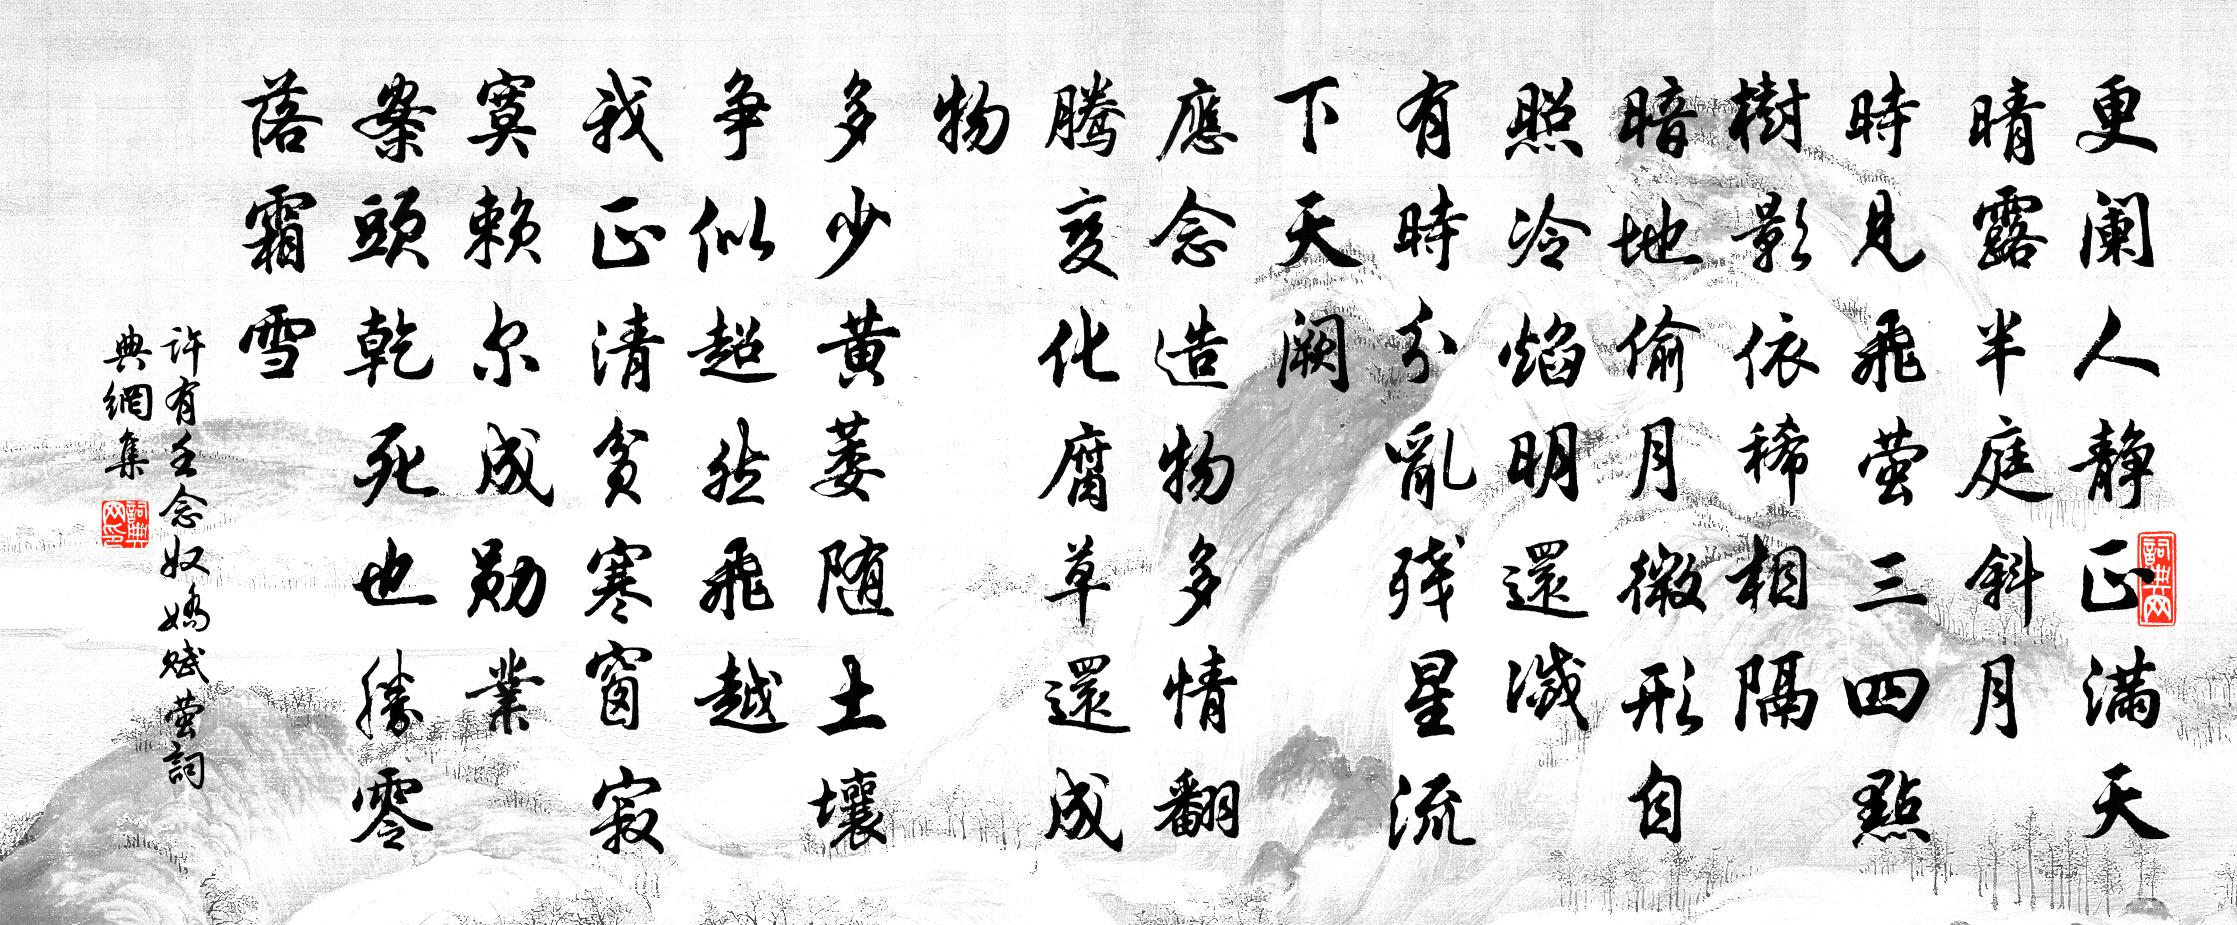 更阑人静正满天
晴露半庭斜月
時見飛萤三四點
樹影依稀相隔
暗地偷月微形自
照冷焰明還滅
有時分亂残星流
下天阙
應念造物多情翻
腾变化腐草還成
物
多少黄萎随土壤
争似超然飛越
我正清貧寒窗寂
寞赖尔成勋業
案頭乾死也勝零
落霜雪
許有壬念奴嬌赋萤詞
典網集
詞典网
詞典网印